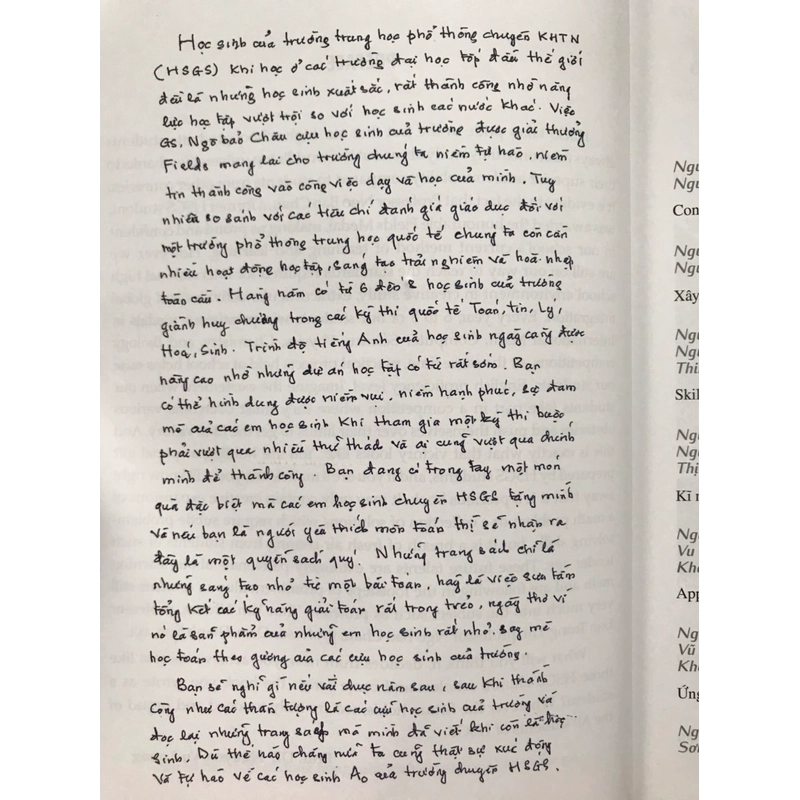 Học sinh của trường trung học phổ thông chuyên KHTN
(HSGS) khi học ở các trường đại học tốp đầu thế giới
đều là những học sinh xuất sắc, rất thành công nhờ năng
lực học tập vượt trội so với học sinh các nước khác. Việc
GS. Ngô bảo Châu cựu học sinh của trường được giải thưởng
Fields mang lại cho trường chúng ta niềm tự hào, niềm
tin thành công vào công việc dạy và học của mình. Tuy
nhiên so sánh với các tiêu chí đánh giá giáo dục đối với
một trường phổ thông trung học quốc tế chúng ta còn cần
nhiều hoạt động học tập, sáng tạo trải nghiệm và hoà nhập
toàn cầu. Hàng năm có từ 6 đến 8 học sinh của trường
giành huy chương trong các kỳ thi quốc tế Toán, tin, Lý,
Hoá, Sinh. Trình độ tiếng Anh của học sinh ngày càng được
nâng cao nhờ những dự án học tập có từ rất sớm. Bạn
có thể hình dung được niềm vui, niềm hạnh phúc, sự đam
mê của các em học sinh khi tham gia một kỳ thi buộc
phải vượt qua nhiều thử thách và ai cũng vượt qua chính
mình để thành công. Bạn đang có trong tay một món
quà đặc biệt mà các em học sinh chuyên HSGS tặng mình
và nếu bạn là người yêu thích môn toán thì sẽ nhận ra
đây là một quyển sách quý. Những trang sách chỉ là
những sáng tạo nhỏ từ một bài toán, hay là việc sưu tầm
tổng kết các kỹ năng giải toán rất trong trẻo, ngây thơ vì
nó là sản phẩm của những em học sinh rất nhỏ, say mê
học toán theo gương của các cựu học sinh của trường.
Bạn sẽ nghĩ gì nếu vài chục năm sau, sau khi thành
công như các thần tượng là các cựu học sinh của trường và
đọc lại những trang sách mà mình đã viết khi còn là học
sinh. Dù thế nào chăng nữa ta cũng thật sự xúc động
và tự hào về các học sinh A0 của trường chuyên HSGS.
Con
Xây
Skil
Kĩ
App
Ứng